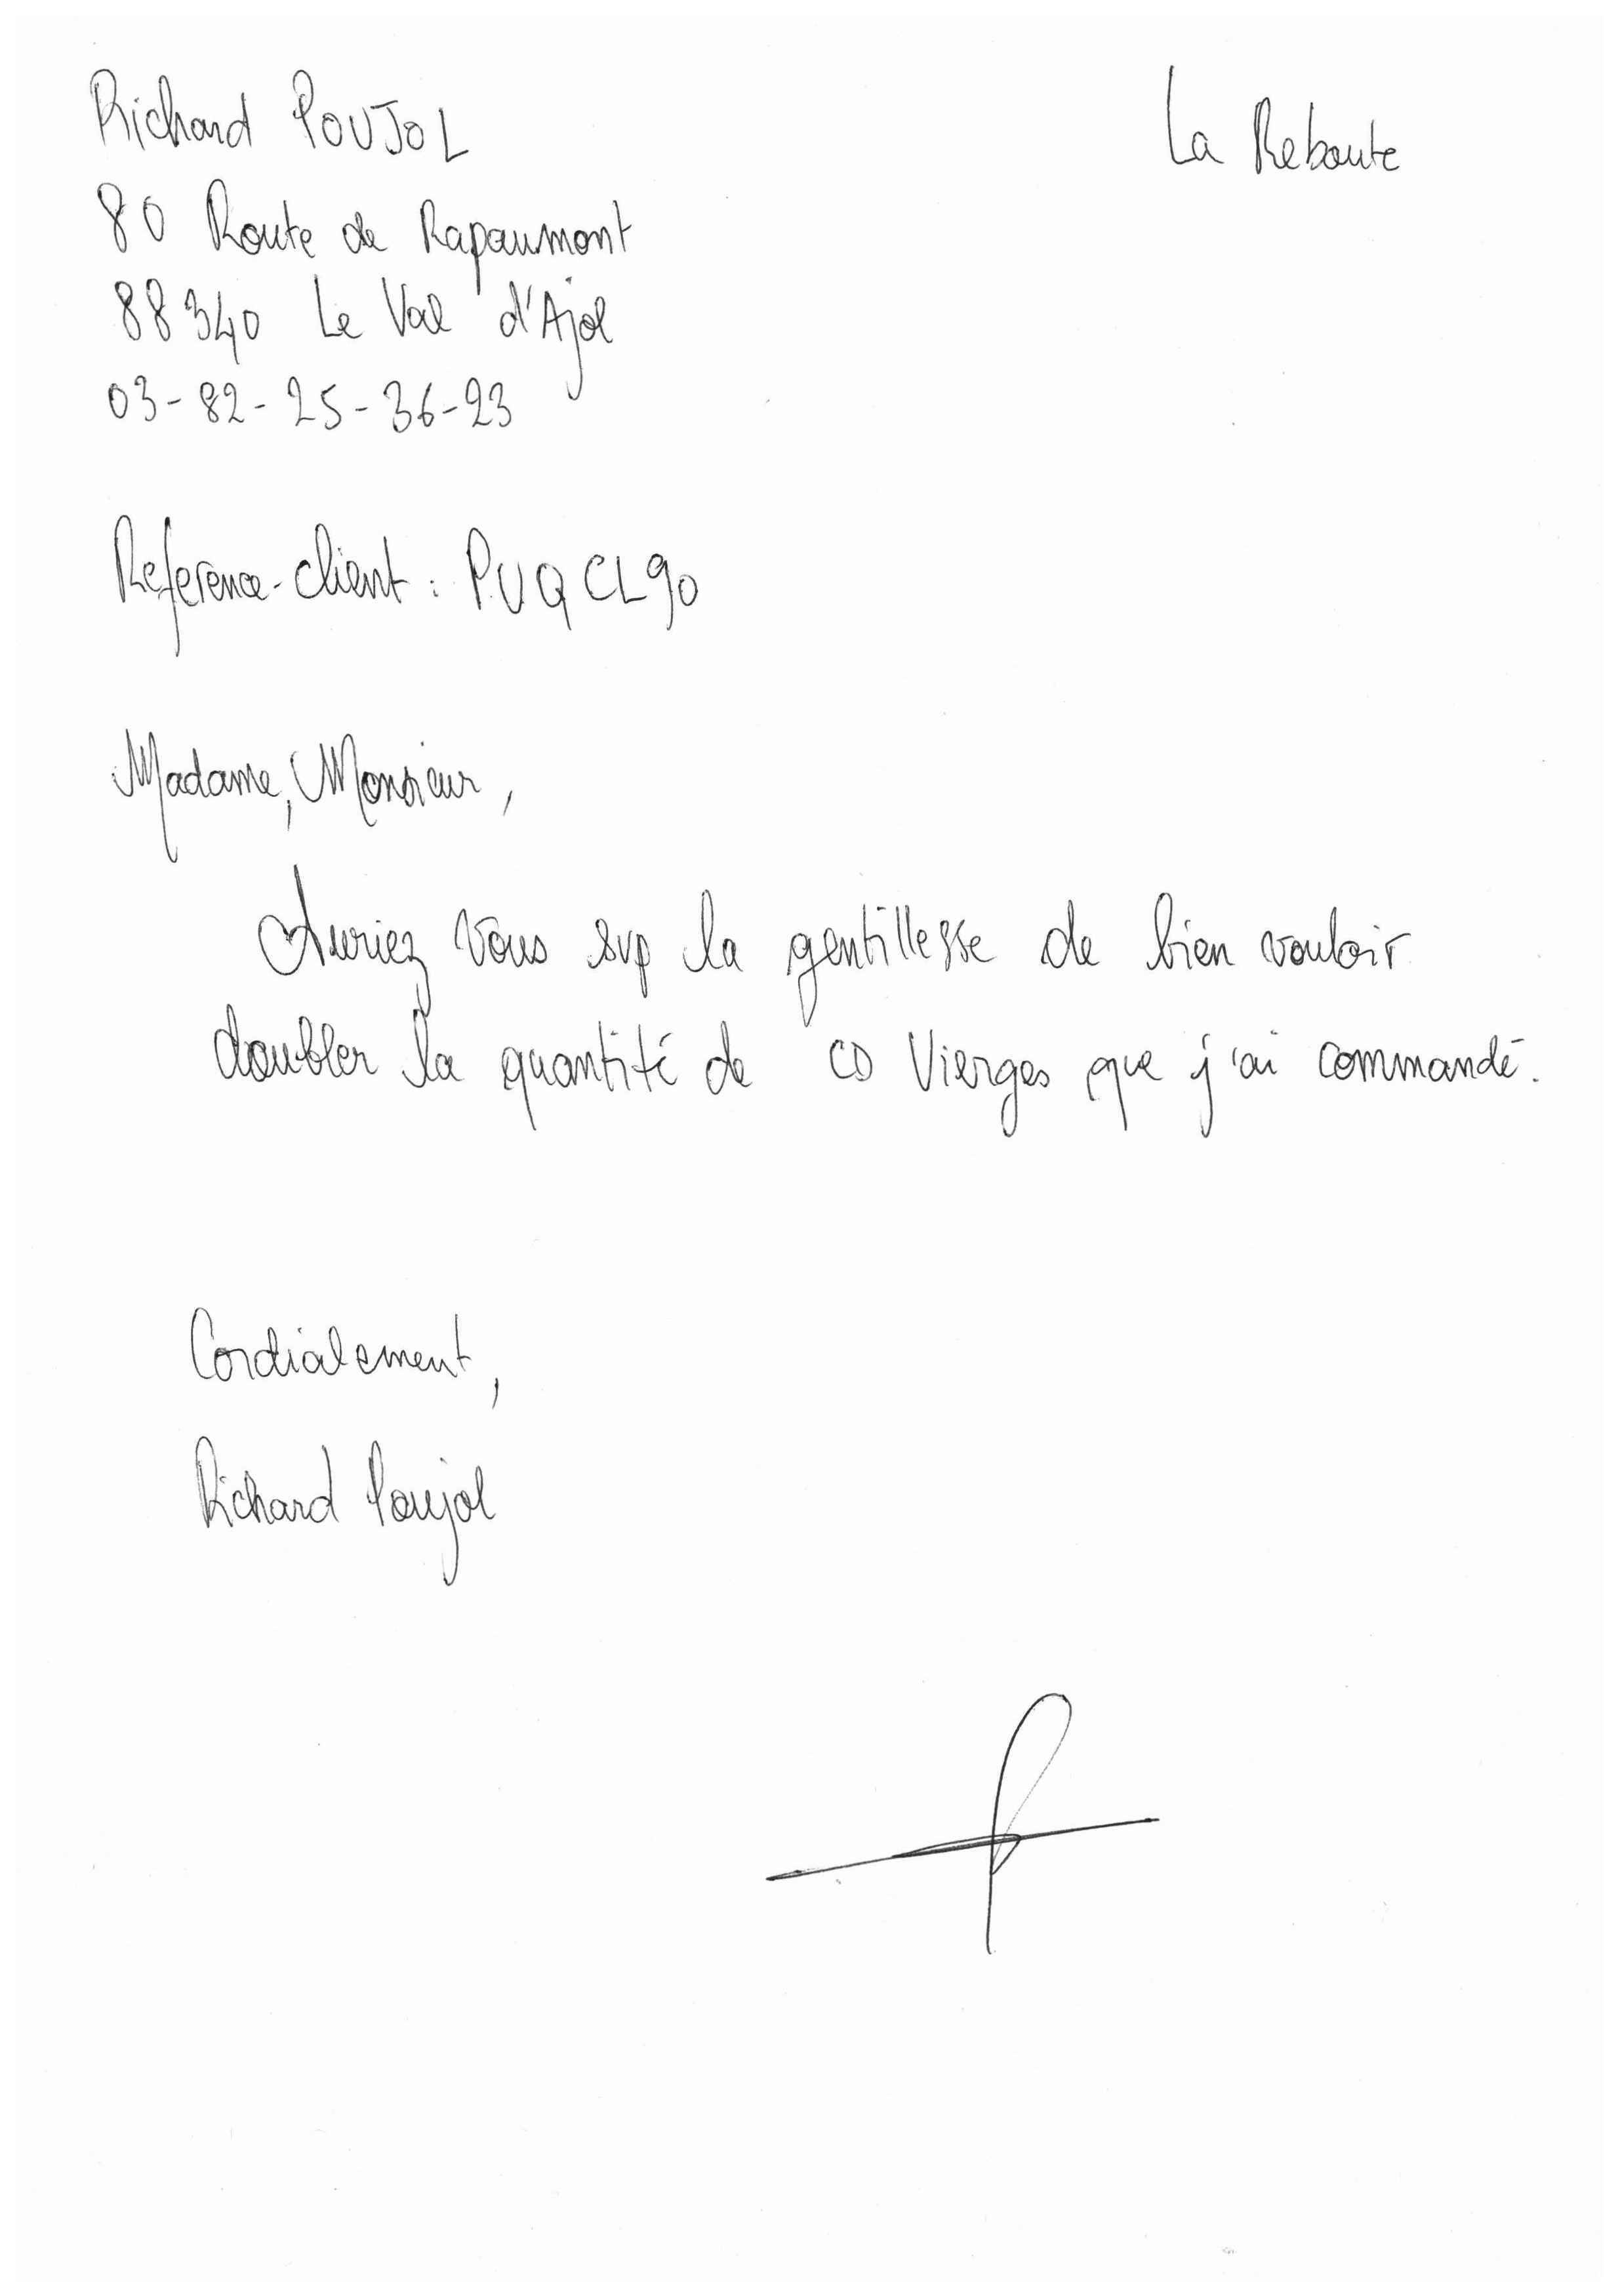 Richard POUJOL
La Reboute
80 Route de Rapaumont
88340 Le Val d'Ajol
03-82-25-36-23
Reference-client : PUQCL90
Madame, Monsieur,
Auriez vous svp la gentillesse de bien vouloir
doubler la quantité de CD Vierges que j'ai commandé.
Cordialement,
Richard Poujol